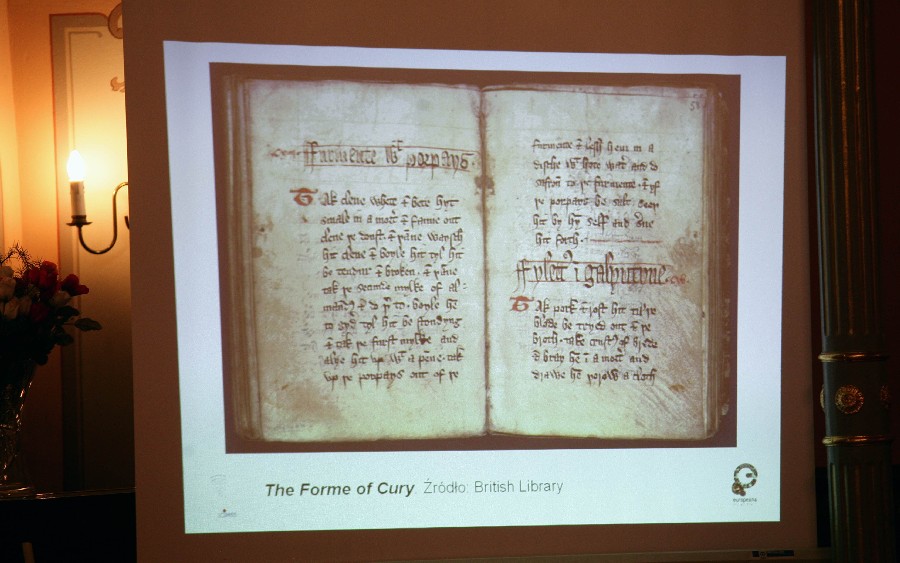 Furmente wt porpays.
Tak clene whete & bete hit
smale in a mort & fanne out
clene þe doust. & þane waysch
hit clene & boyle hit tyl hit
be tendur & broken. & þane
tak þe secunde mylke of al=
mand & do þ to. boyle he
to gyd tyl hit be stondyng
& tak þe furst mylke and
alye hit up wt a penne. tak
up þe porpays out of þe
furmente & lesh hem in a
dische wt hote wat and do
safron to þe furmente. & yf
þe porpays be salt. seeþ
hit by hit self and serve
hit forth.
Fylet i galyntyne.
Tak pork & rost hit til þe
blode be tryed out & þe
broth. take crust of brede
& bray he i a mort and
drawe he þorow a cloth
The Forme of Cury. Źródło: British Library
europeana